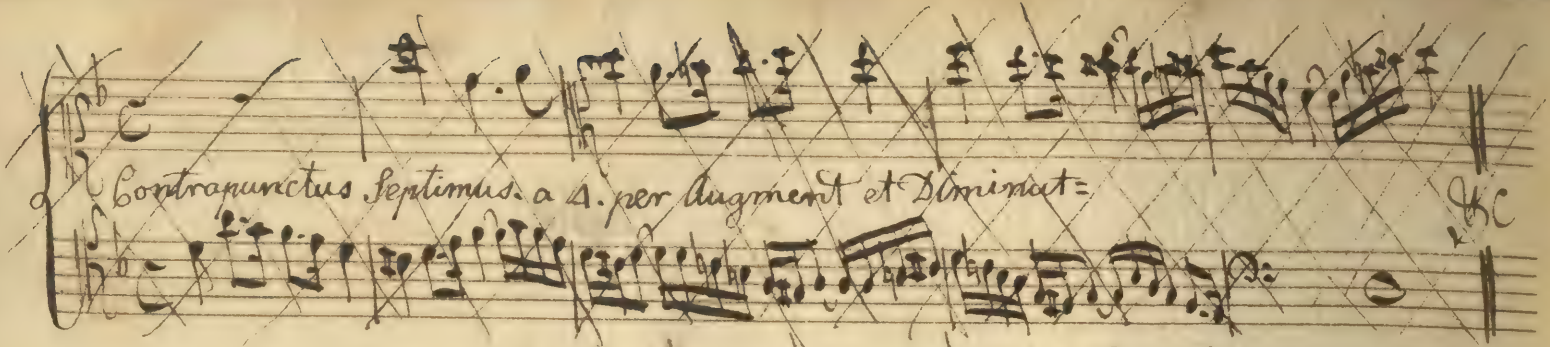 Contrapunctus Septimus. a 4. per Augment et Diminut=
&c